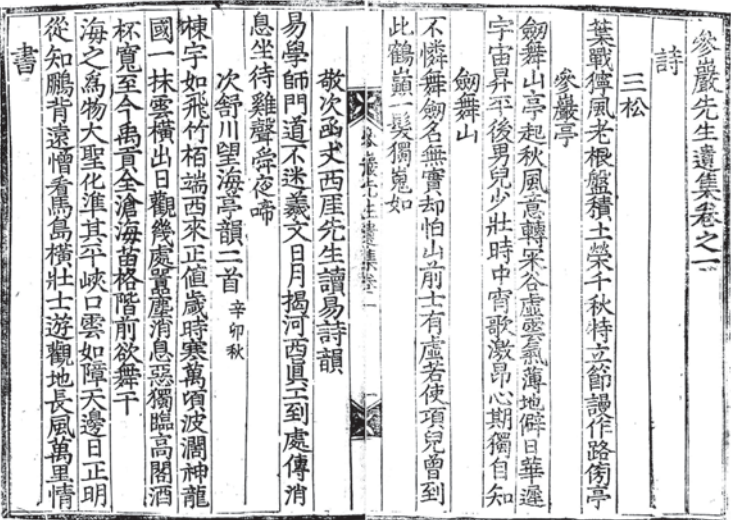 參巖先生遺集卷之一
詩
三松
葉戰獰風老根盤積土榮千秋特立節謾作路傍亭
參巖亭
劒舞山亭起秋風意轉深谷虛雲氣薄地僻日華遲
宇宙昇平後男兒少壯時中宵歌激昂心期獨自知
劒舞山
不憐舞劒名無實却怕山前士有虛若使項兒曾到
此鶴巔一髮獨嵬如
參巖先生遺集卷一
敬次函丈西厓先生讀易詩韻
易學師門道不迷羲文日月揭河西眞工到處傳消
息坐待雞聲舜夜啼
次舒川望海亭韻二首 辛卯秋
棟宇如飛竹栢端西來正値歲時寒萬頃波濶神龍
國一抹雲橫出日觀幾處蜃塵消息惡獨臨高閣酒
杯寬至今禹貢全滄海苗格階前欲舞干
海之爲物大聖化準其平峽口雲如障天邊日正明
從知鵬背遠憎看馬島橫壯士遊觀地長風萬里情
書